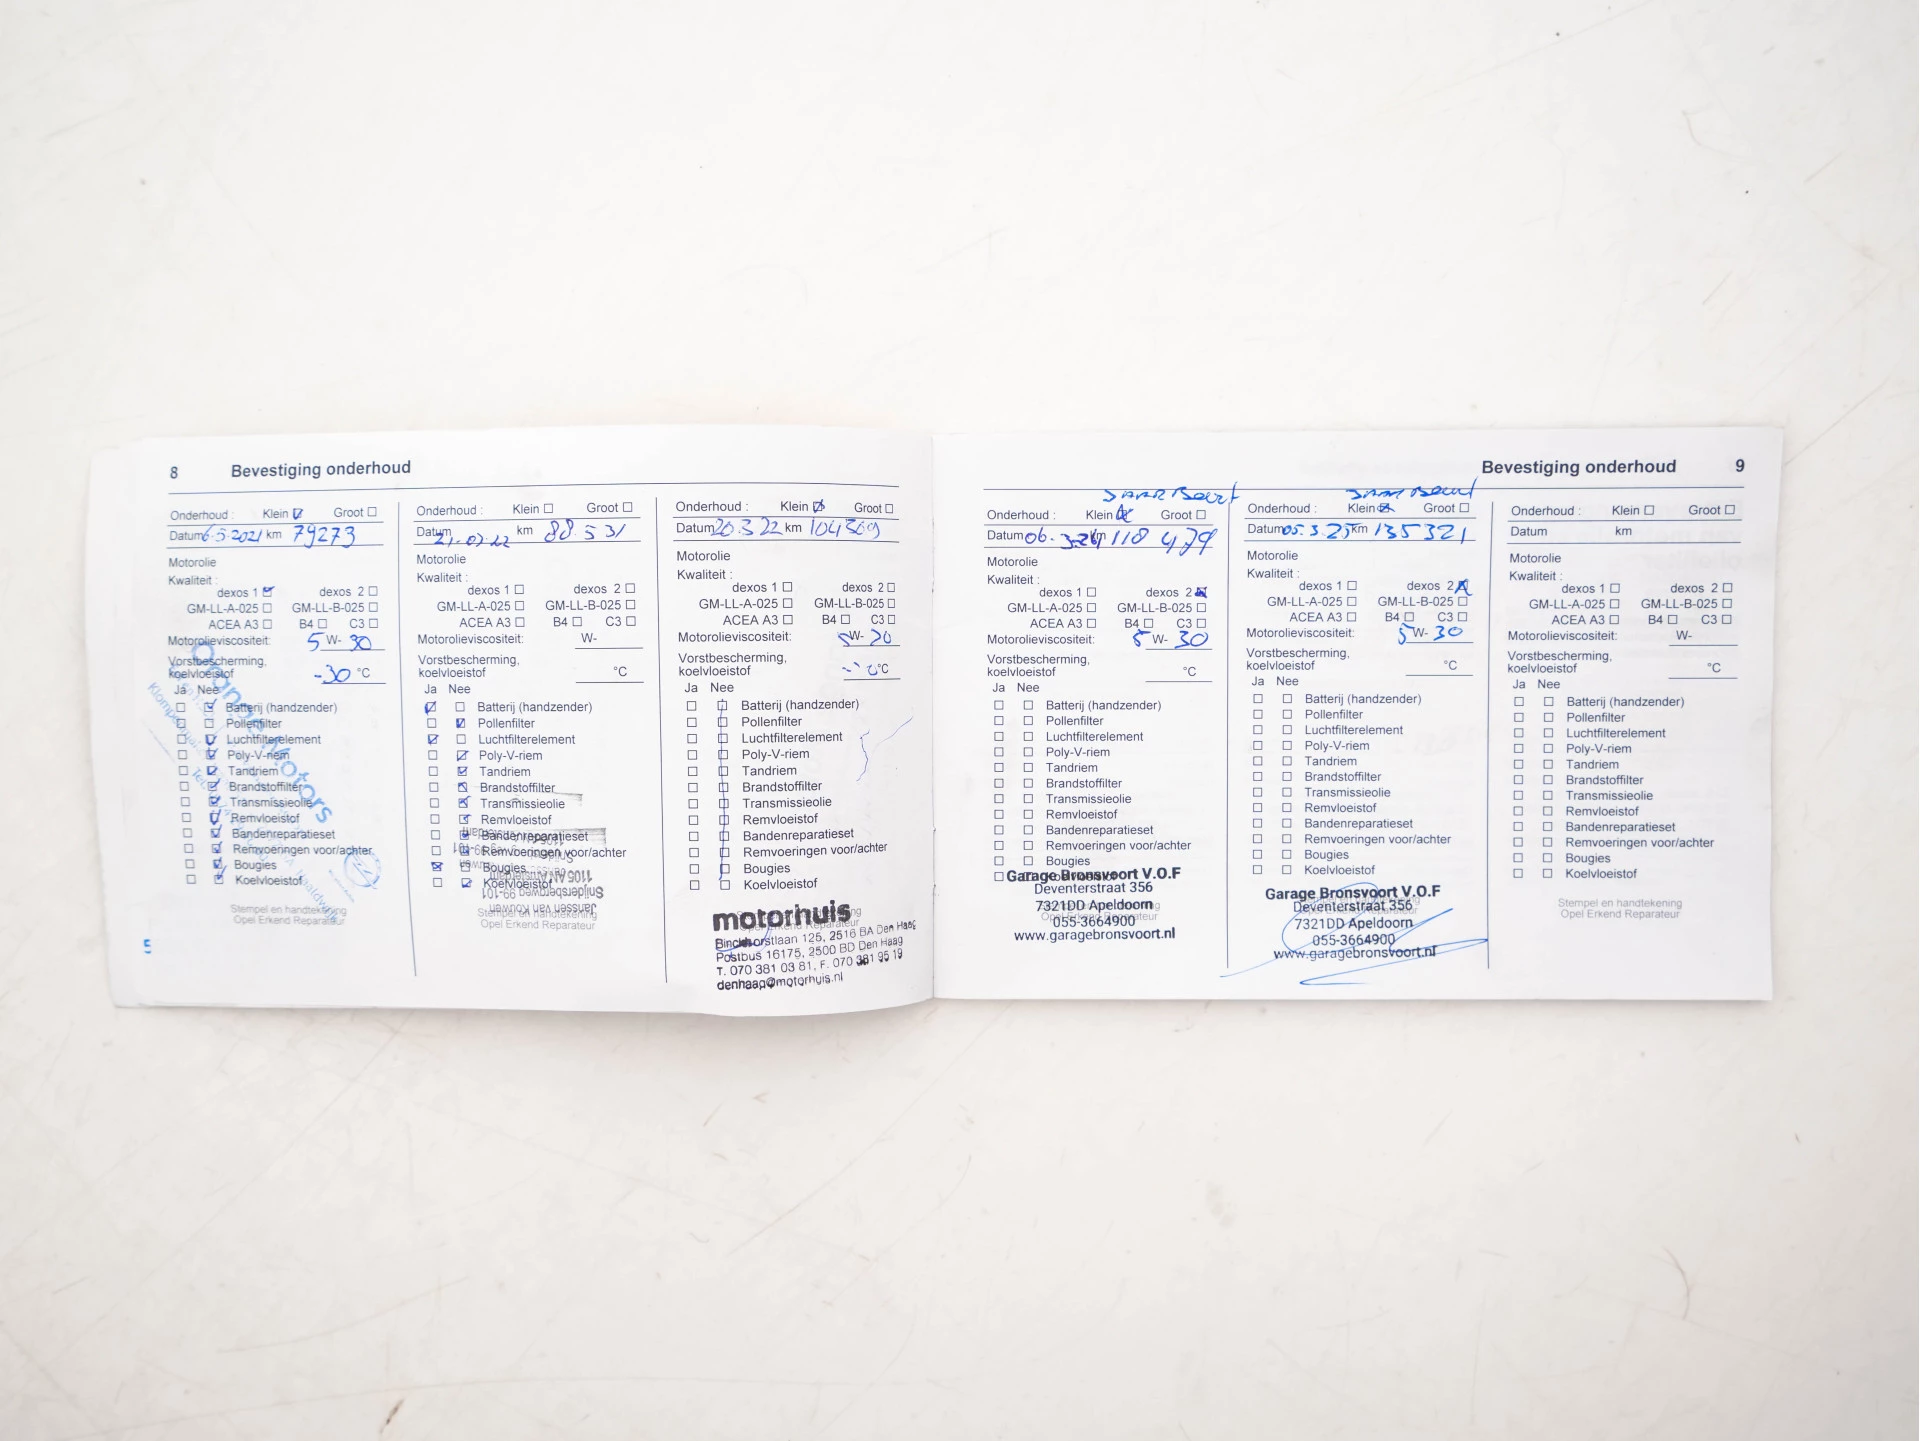 8 Bevestiging onderhoud
Onderhoud : Klein ☑ Groot ☐
Datum 6-5-2021 km 79273
Motorolie
Kwaliteit :
dexos 1 ☑ dexos 2 ☐
GM-LL-A-025 ☐ GM-LL-B-025 ☐
ACEA A3 ☐ B4 ☐ C3 ☐
Motorolieviscositeit: 5 W- 30
Vorstbescherming,
koelvloeistof -30 °C
Ja Nee
☐ ☑ Batterij (handzender)
☐ ☐ Pollenfilter
☐ ☑ Luchtfilterelement
☐ ☑ Poly-V-riem
☐ ☑ Tandriem
☐ ☑ Brandstoffilter
☐ ☑ Transmissieolie
☐ ☑ Remvloeistof
☐ ☑ Bandenreparatieset
☐ ☑ Remvoeringen voor/achter
☐ ☑ Bougies
☐ ☑ Koelvloeistof
Stempel en handtekening
Opel Erkend Reparateur
Motors
5
Onderhoud : Klein ☐ Groot ☐
Datum km 88.531
Motorolie
Kwaliteit :
dexos 1 ☐ dexos 2 ☐
GM-LL-A-025 ☐ GM-LL-B-025 ☐
ACEA A3 ☐ B4 ☐ C3 ☐
Motorolieviscositeit: W-
Vorstbescherming,
koelvloeistof °C
Ja Nee
☑ ☐ Batterij (handzender)
☐ ☑ Pollenfilter
☑ ☐ Luchtfilterelement
☐ ☑ Poly-V-riem
☐ ☑ Tandriem
☐ ☑ Brandstoffilter
☐ ☑ Transmissieolie
☐ ☑ Remvloeistof
☐ ☑ Bandenreparatieset
☐ ☑ Remvoeringen voor/achter
☑ ☐ Bougies
☐ ☑ Koelvloeistof
Snijdersbergweg 99-101
Janssen van Kouwen
Stempel en handtekening
Opel Erkend Reparateur
Onderhoud : Klein ☑ Groot ☐
Datum 20.3.22 km 104309
Motorolie
Kwaliteit :
dexos 1 ☐ dexos 2 ☐
GM-LL-A-025 ☐ GM-LL-B-025 ☐
ACEA A3 ☐ B4 ☐ C3 ☐
Motorolieviscositeit: 5 W- 20
Vorstbescherming,
koelvloeistof °C
Ja Nee
☐ ☐ Batterij (handzender)
☐ ☐ Pollenfilter
☐ ☐ Luchtfilterelement
☐ ☐ Poly-V-riem
☐ ☐ Tandriem
☐ ☐ Brandstoffilter
☐ ☐ Transmissieolie
☐ ☐ Remvloeistof
☐ ☐ Bandenreparatieset
☐ ☐ Remvoeringen voor/achter
☐ ☐ Bougies
☐ ☐ Koelvloeistof
motorhuis
Binckhorstlaan 125, 2516 BA Den Haag
Postbus 16175, 2500 BD Den Haag
T. 070 381 03 81, F. 070 381 95 19
denhaag@motorhuis.nl
Bevestiging onderhoud 9
Jaar Beurt
Onderhoud : Klein ☑ Groot ☐
Datum 06.3.24 km 118 479
Motorolie
Kwaliteit :
dexos 1 ☐ dexos 2 ☑
GM-LL-A-025 ☐ GM-LL-B-025 ☐
ACEA A3 ☐ B4 ☐ C3 ☐
Motorolieviscositeit: 5 W- 30
Vorstbescherming,
koelvloeistof °C
Ja Nee
☐ ☐ Batterij (handzender)
☐ ☐ Pollenfilter
☐ ☐ Luchtfilterelement
☐ ☐ Poly-V-riem
☐ ☐ Tandriem
☐ ☐ Brandstoffilter
☐ ☐ Transmissieolie
☐ ☐ Remvloeistof
☐ ☐ Bandenreparatieset
☐ ☐ Remvoeringen voor/achter
☐ ☐ Bougies
Garage Bronsvoort V.O.F
Deventerstraat 356
7321DD Apeldoorn
055-3664900
www.garagebronsvoort.nl
Jaar Beurt
Onderhoud : Klein ☑ Groot ☐
Datum 05.3.25 km 135321
Motorolie
Kwaliteit :
dexos 1 ☐ dexos 2 ☑
GM-LL-A-025 ☐ GM-LL-B-025 ☐
ACEA A3 ☐ B4 ☐ C3 ☐
Motorolieviscositeit: 5 W- 30
Vorstbescherming,
koelvloeistof °C
Ja Nee
☐ ☐ Batterij (handzender)
☐ ☐ Pollenfilter
☐ ☐ Luchtfilterelement
☐ ☐ Poly-V-riem
☐ ☐ Tandriem
☐ ☐ Brandstoffilter
☐ ☐ Transmissieolie
☐ ☐ Remvloeistof
☐ ☐ Bandenreparatieset
☐ ☐ Remvoeringen voor/achter
☐ ☐ Bougies
☐ ☐ Koelvloeistof
Garage Bronsvoort V.O.F
Deventerstraat 356
7321DD Apeldoorn
055-3664900
www.garagebronsvoort.nl
Onderhoud : Klein ☐ Groot ☐
Datum km
Motorolie
Kwaliteit :
dexos 1 ☐ dexos 2 ☐
GM-LL-A-025 ☐ GM-LL-B-025 ☐
ACEA A3 ☐ B4 ☐ C3 ☐
Motorolieviscositeit: W-
Vorstbescherming,
koelvloeistof °C
Ja Nee
☐ ☐ Batterij (handzender)
☐ ☐ Pollenfilter
☐ ☐ Luchtfilterelement
☐ ☐ Poly-V-riem
☐ ☐ Tandriem
☐ ☐ Brandstoffilter
☐ ☐ Transmissieolie
☐ ☐ Remvloeistof
☐ ☐ Bandenreparatieset
☐ ☐ Remvoeringen voor/achter
☐ ☐ Bougies
☐ ☐ Koelvloeistof
Stempel en handtekening
Opel Erkend Reparateur